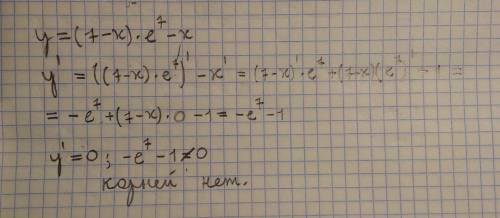 y = (7-x)·e⁷-x
y' = ((7-x)·e⁷)' - x' = (7-x)'·e⁷+(7-x)(e⁷)' - 1 =
= -e⁷+(7-x)·0 -1 = -e⁷-1
y'=0; -e⁷-1≠0
корней нет.